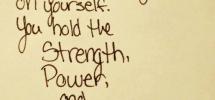 on yourself.
You hold the
Strength,
Power,
and